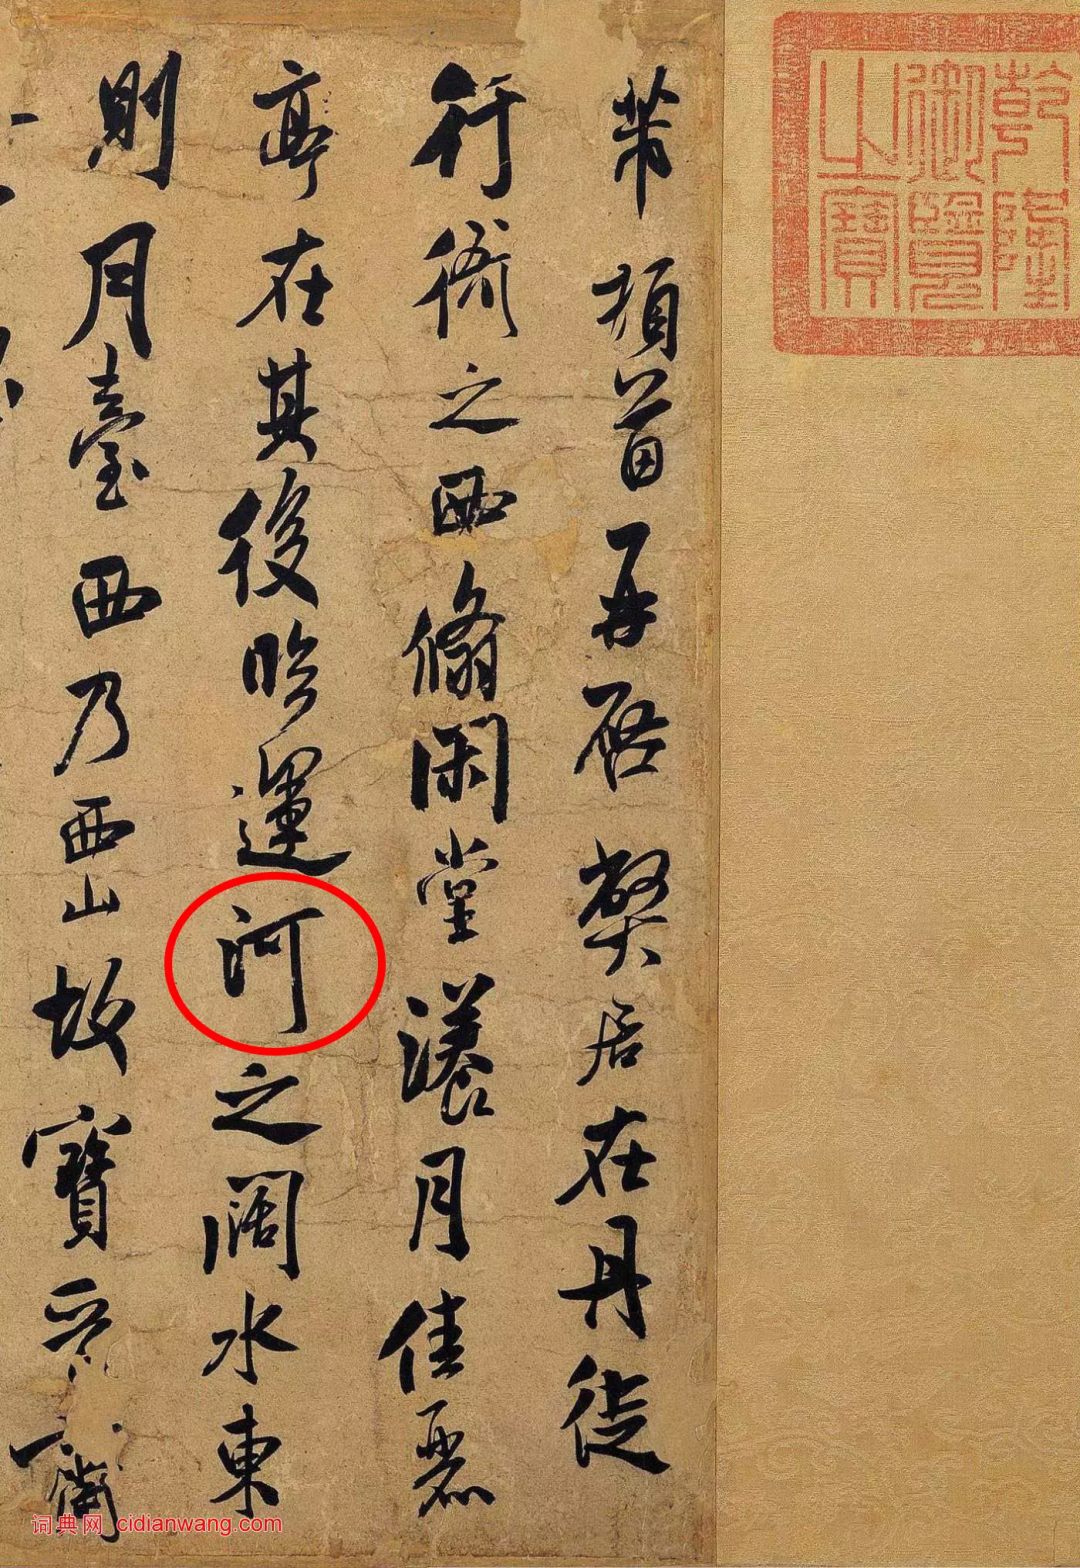 乾隆
御覽
之寶
芾頓首再啓弊居在丹徒
行衙之西翛閑堂漾月佳麗
亭在其後臨運河之闊水東
則月臺西乃西山故寶晉
词典网 cidianwang.com